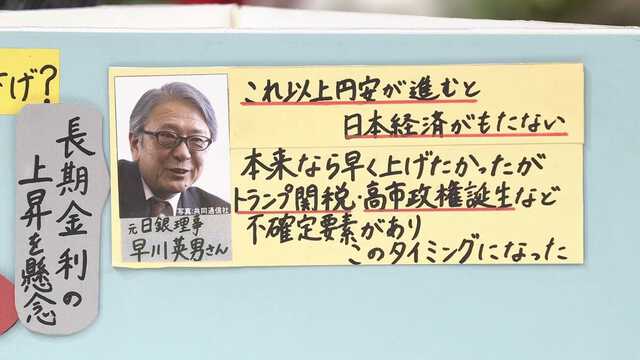 げ?
長期金利の
上昇を懸念
写真:共同通信社
元日銀理事
早川英男さん
これ以上円安が進むと
日本経済がもたない
本来なら早く上げたかったが
トランプ関税・高市政権誕生など
不確定要素があり
このタイミングになった